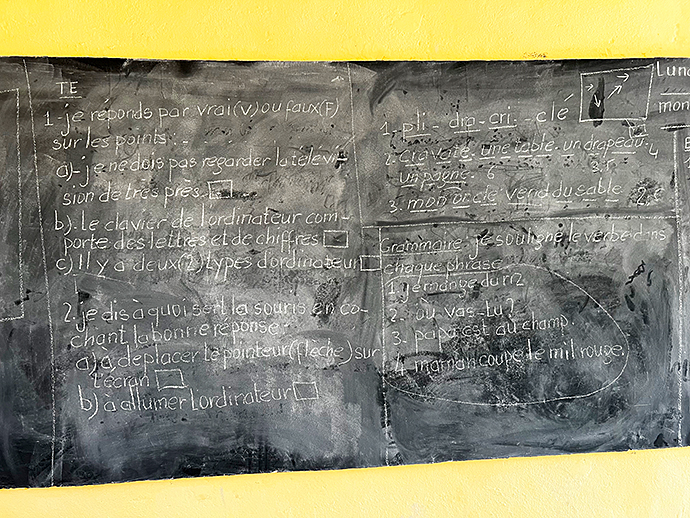 TE
1-je réponds par vrai(v) ou faux(F)
sur les points : -
a)-je ne dois pas regarder la télévi-
sion de très près.
b).le clavier de l'ordinateur com-
porte des lettres et de chiffres
c) Il y a deux(2) types d'ordinateur
2.je dis à quoi sert la souris en co-
chant la bonne réponse
a) à déplacer le pointeur (flèche) sur
l'écran
b) à allumer l'ordinateur
1 - pli - dra - cri - clé
2. cravate. une table. un drapeau. 4
un pagne. 6
3. mon oncle vend du sable
Grammaire. je souligne le verbe dans
chaque phrase
1. je mange du riz
2. où vas-tu?
3. papa est au champ.
4 maman coupe le mil rouge.
Lund
mon